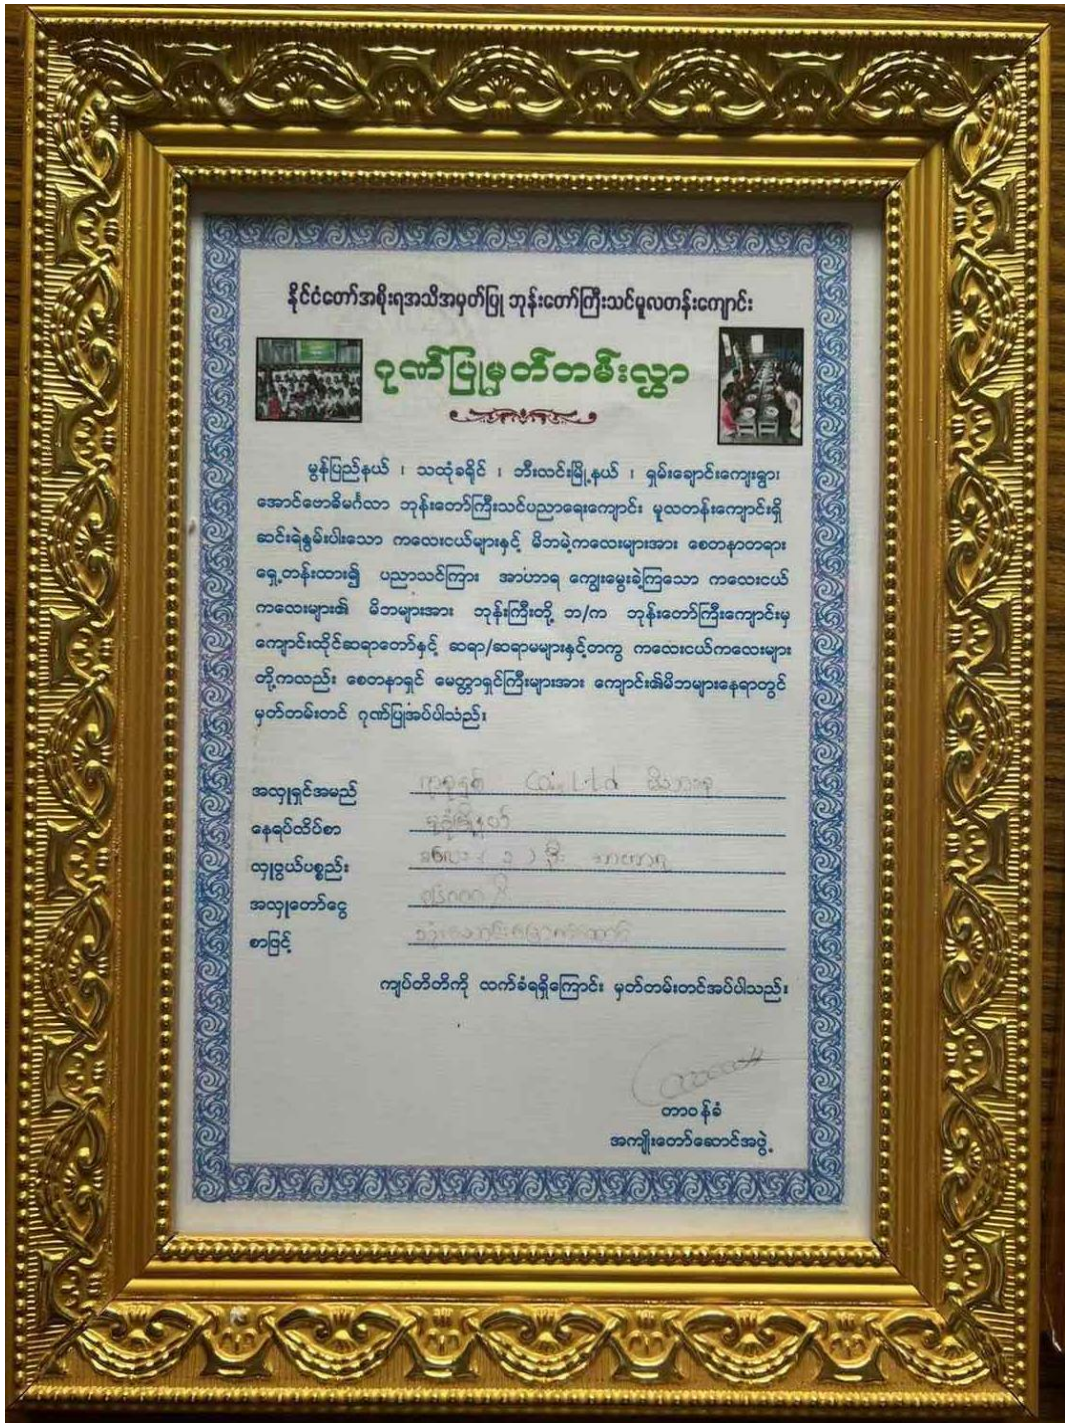 နိုင်ငံတော်အစိုးရအသိအမှတ်ပြု ဘုန်းတော်ကြီးသင်မူလတန်းကျောင်း
ဂုဏ်ပြုမှတ်တမ်းလွှာ
မွန်ပြည်နယ် ၊ သထုံခရိုင် ၊ ဘီးလင်းမြို့နယ် ၊ ရှမ်းချောင်းကျေးရွာ၊
အောင်ဗောဓိမင်္ဂလာ ဘုန်းတော်ကြီးသင်ပညာရေးကျောင်း မူလတန်းကျောင်းရှိ
ဆင်းရဲနွမ်းပါးသော ကလေးငယ်များနှင့် မိဘမဲ့ကလေးများအား စေတနာတရား
ရှေ့တန်းထား၍ ပညာသင်ကြား အာဟာရ ကျွေးမွေးခဲ့ကြသော ကလေးငယ်
ကလေးများ၏ မိဘများအား ဘုန်းကြီးတို့ ဘ/က ဘုန်းတော်ကြီးကျောင်းမှ
ကျောင်းထိုင်ဆရာတော်နှင့် ဆရာ/ဆရာမများနှင့်တကွ ကလေးငယ်ကလေးများ
တို့ကလည်း စေတနာရှင် မေတ္တာရှင်ကြီးများအား ကျောင်း၏မိဘများနေရာတွင်
မှတ်တမ်းတင် ဂုဏ်ပြုအပ်ပါသံည်း
အလှူရှင်အမည် Co., Ltd မိသားစု
နေရပ်လိပ်စာ
လှူဒွယ်ပစ္စည်း
အလှုတော်ငွေ
စာဖြင့်
ကျပ်တိတိကို လက်ခံရရှိကြောင်း မှတ်တမ်းတင်အပ်ပါသည်း
တာဝန်ခံ
အကျိုးတော်ဆောင်အဖွဲ့